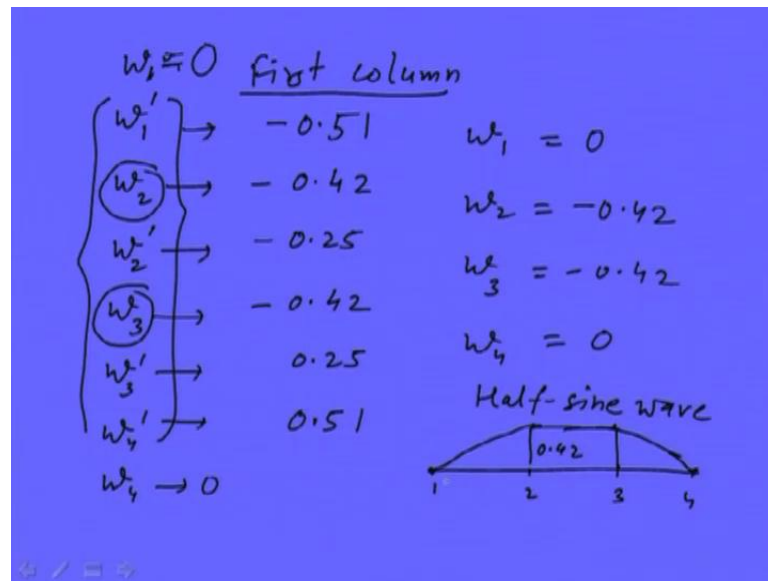 w₁ = 0 First column
w₁' → - 0.51
w₂ → - 0.42
w₂' → - 0.25
w₃ → - 0.42
w₃' → 0.25
w₄' → 0.51
w₄ → 0
w₁ = 0
w₂ = -0.42
w₃ = -0.42
w₄ = 0
Half-sine wave
0.42
1 2 3 4